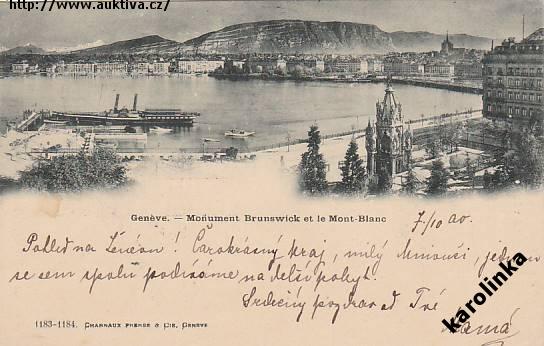 http://www.auktiva.cz/
Genève. — Monument Brunswick et le Mont-Blanc
7/10 00.
Pohled na Ženevu! Čarokrásný kraj, milý
se sem spolu podíváme na delší pobyt.
Srdečný pozdrav od Tvé
karolinka
1183-1184. CHARNAUX FRÈRES & CIE, GENÈVE